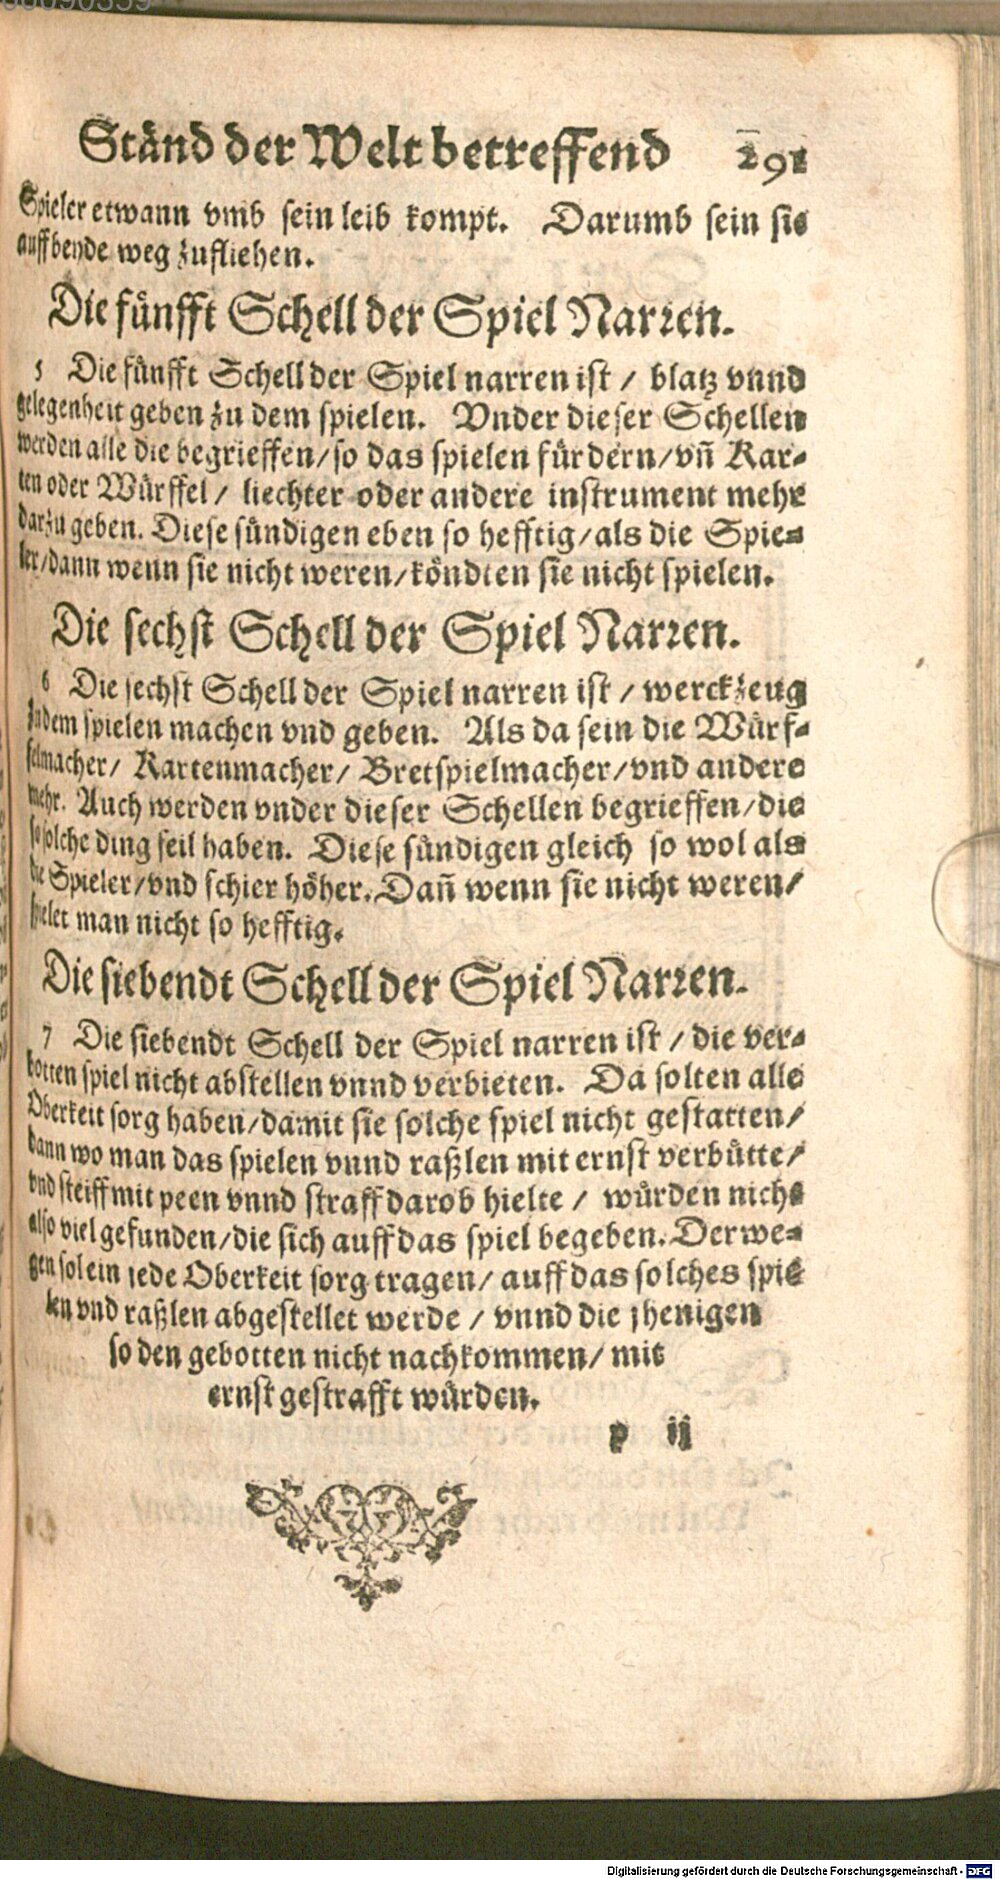 Ständ der Welt betreffend 291
Spieler etwann vmb sein leib kompt. Darumb sein sie
auff beyde weg zufliehen.
Die fünfft Schell der Spiel Narren.
5 Die fünfft Schell der Spiel narren ist / blatz vnnd
gelegenheit geben zu dem spielen. Vnder dieser Schellen
werden alle die begrieffen/so das spielen fürdern/vñ Kar-
ten oder Würffel / liechter oder andere instrument mehr
darzu geben. Diese sündigen eben so hefftig/als die Spie-
ler/dann wenn sie nicht weren/köndten sie nicht spielen.
Die sechst Schell der Spiel Narren.
6 Die sechst Schell der Spiel narren ist / werckzeug
zu dem spielen machen vnd geben. Als da sein die Würf-
felmacher/ Kartenmacher/ Bretspielmacher/vnd andere
mehr. Auch werden vnder dieser Schellen begrieffen/die
so solche ding feil haben. Diese sündigen gleich so wol als
die Spieler/vnd schier höher. Dañ wenn sie nicht weren/
spielet man nicht so hefftig.
Die siebendt Schell der Spiel Narren.
7 Die siebendt Schell der Spiel narren ist / die ver-
botten spiel nicht abstellen vnnd verbieten. Da solten alle
Oberkeit sorg haben/damit sie solche spiel nicht gestatten/
dann wo man das spielen vnnd raßlen mit ernst verbütte/
vnd steiff mit peen vnnd straff darob hielte / würden nicht
also viel gefunden/die sich auff das spiel begeben. Derwe-
gen sol ein jede Oberkeit sorg tragen/ auff das solches spie
len vnd raßlen abgestellet werde / vnnd die jhenigen
so den gebotten nicht nachkommen/ mit
ernst gestrafft würden.
p ij
Digitalisierung gefördert durch die Deutsche Forschungsgemeinschaft - DFG